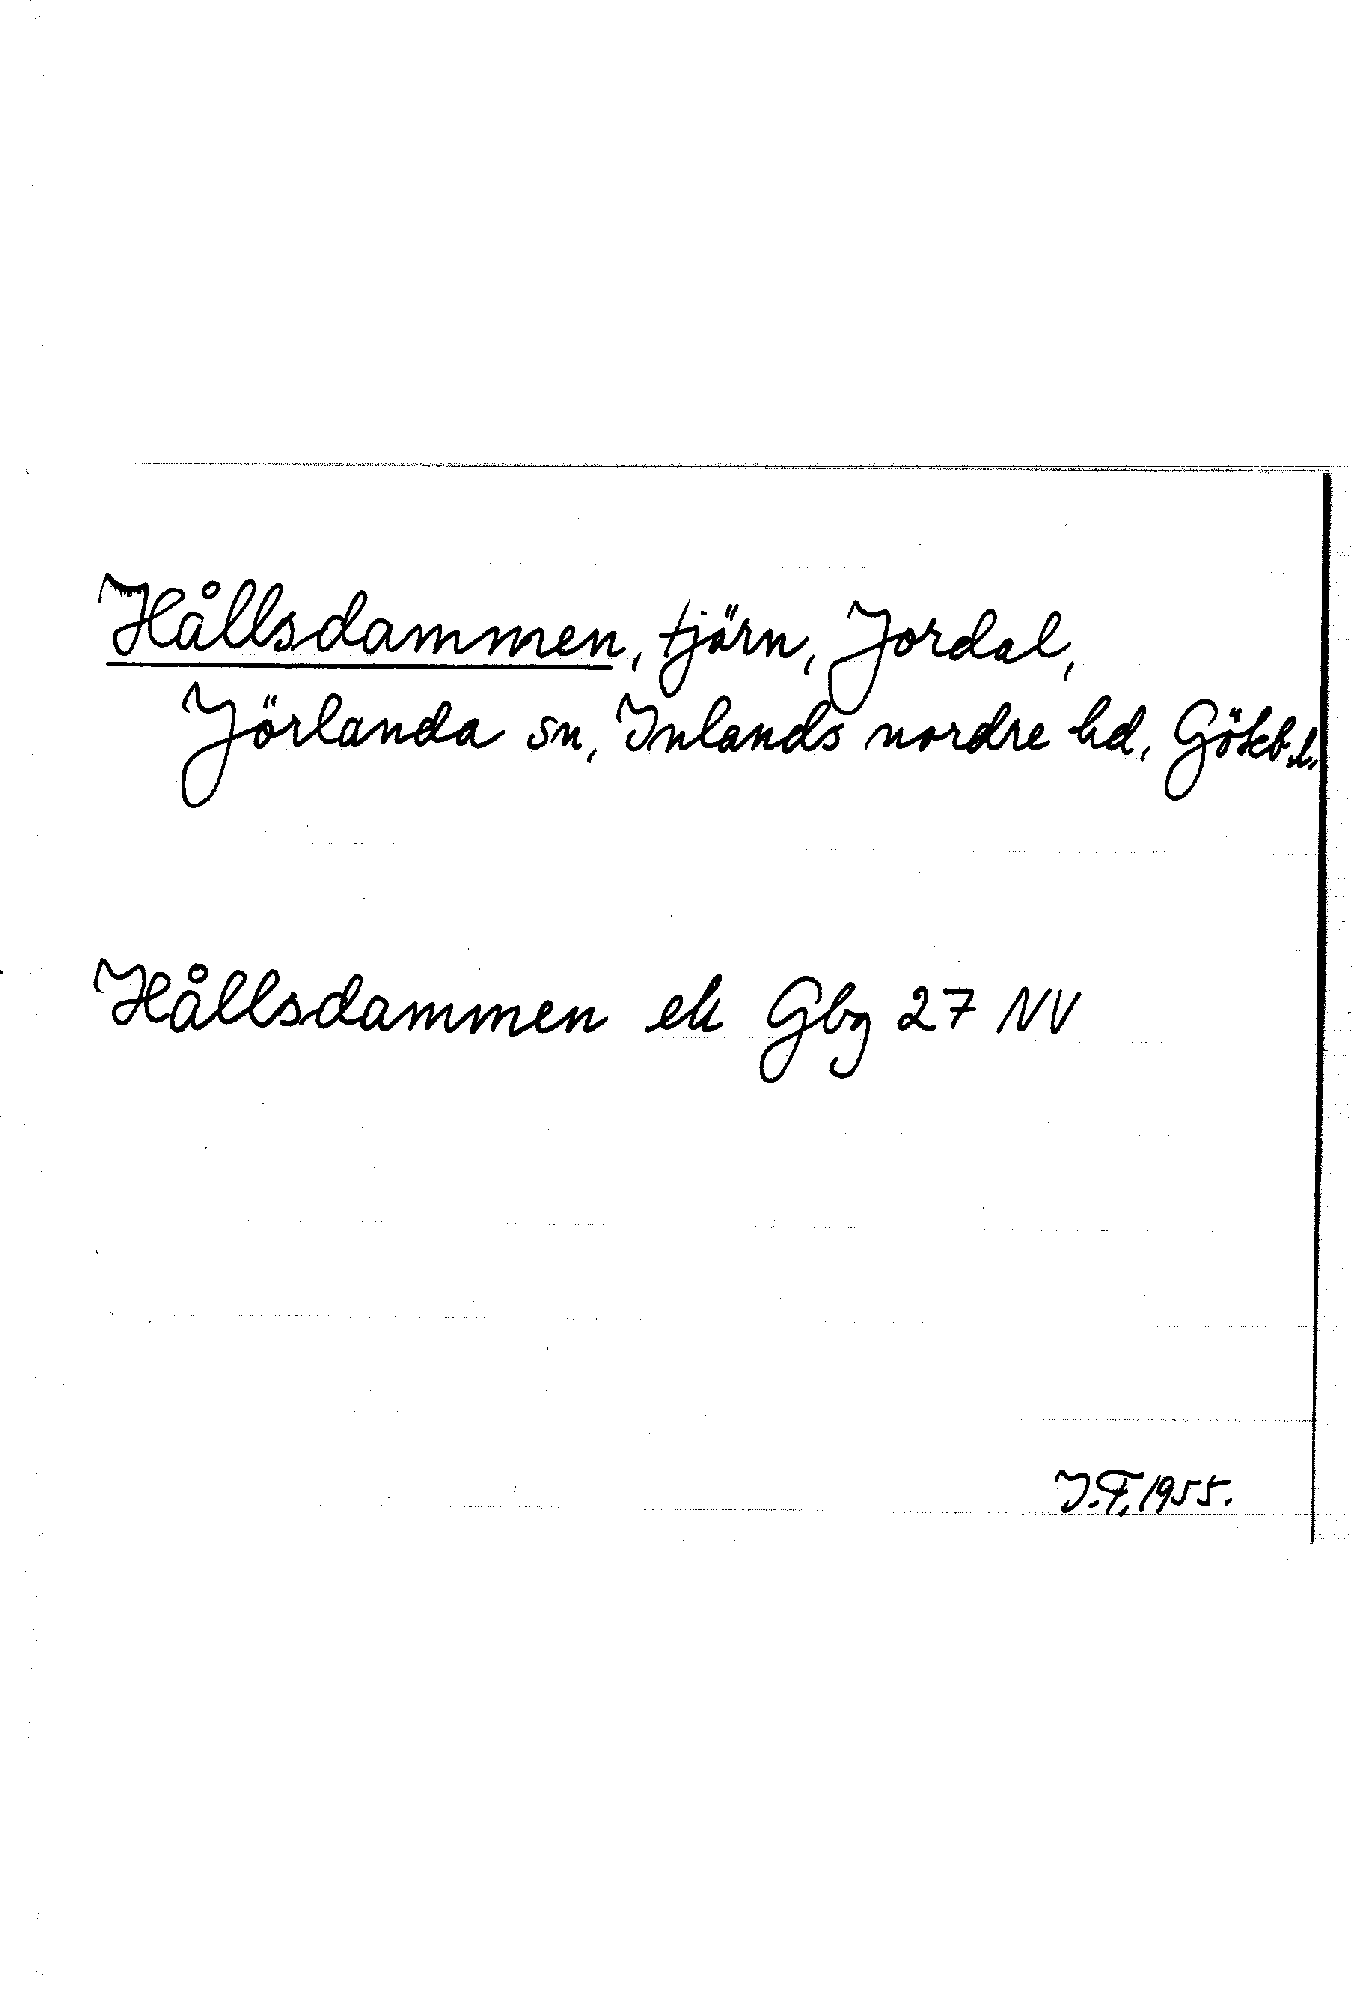 Hållsdammen, tjörn, Jordal,
Jörlanda sn, Inlands nordre hd, Göteb.l.
Hållsdammen ek Gbg 27 NV
I.F. 1955.